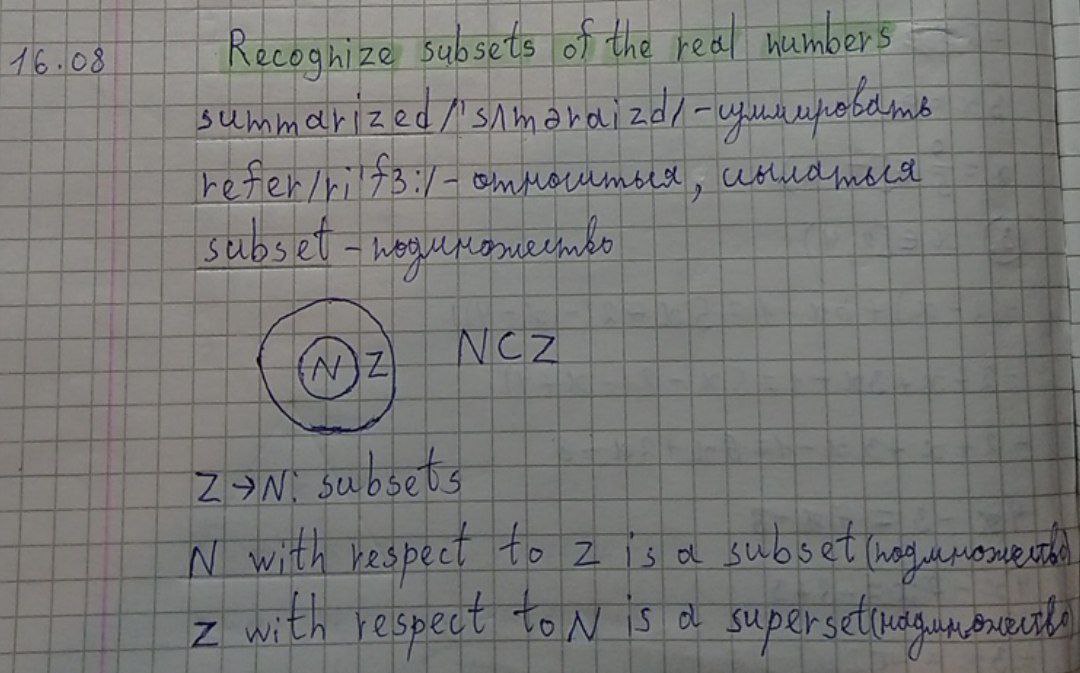 16.08 Recognize subsets of the real numbers
summarized /'sʌməraizd/ - суммировать
refer /ri'fɜ:/ - относиться, ссылаться
subset - подмножество
N Z N⊂Z
Z→N: subsets
N with respect to Z is a subset (подмножество)
Z with respect to N is a superset (надмножество)